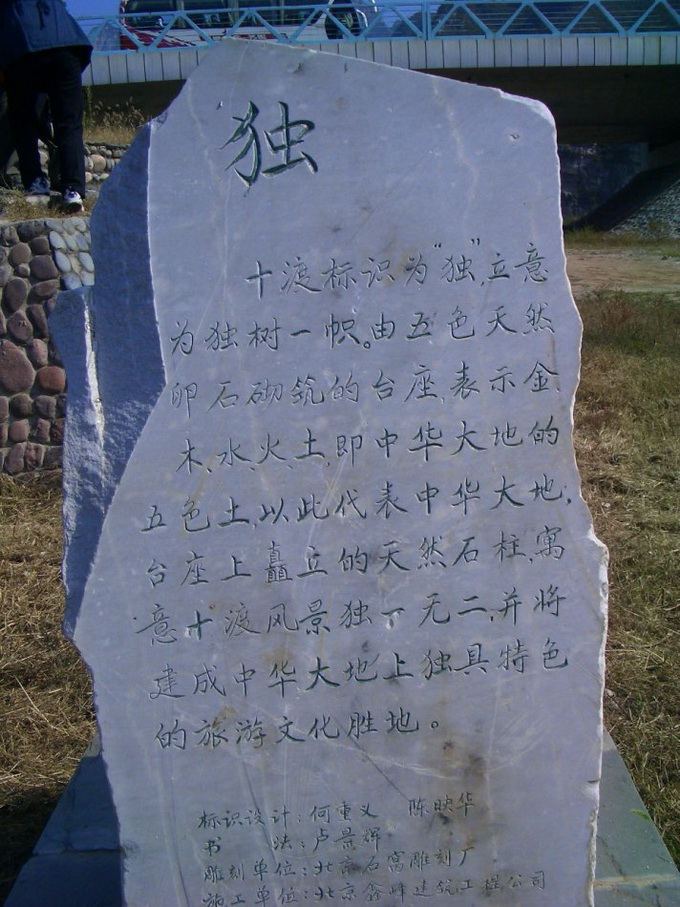 独
十渡标识为"独",立意
为独树一帜。由五色天然
卵石砌筑的台座,表示金、
木、水、火、土,即中华大地的
五色土,以此代表中华大地;
台座上矗立的天然石柱,寓
意十渡风景独一无二,并将
建成中华大地上独具特色
的旅游文化胜地。
标识设计:何重义 陈映华
书 法:卢景辉
雕刻单位:北京石窝雕刻厂
施工单位:北京鑫 建筑工程公司